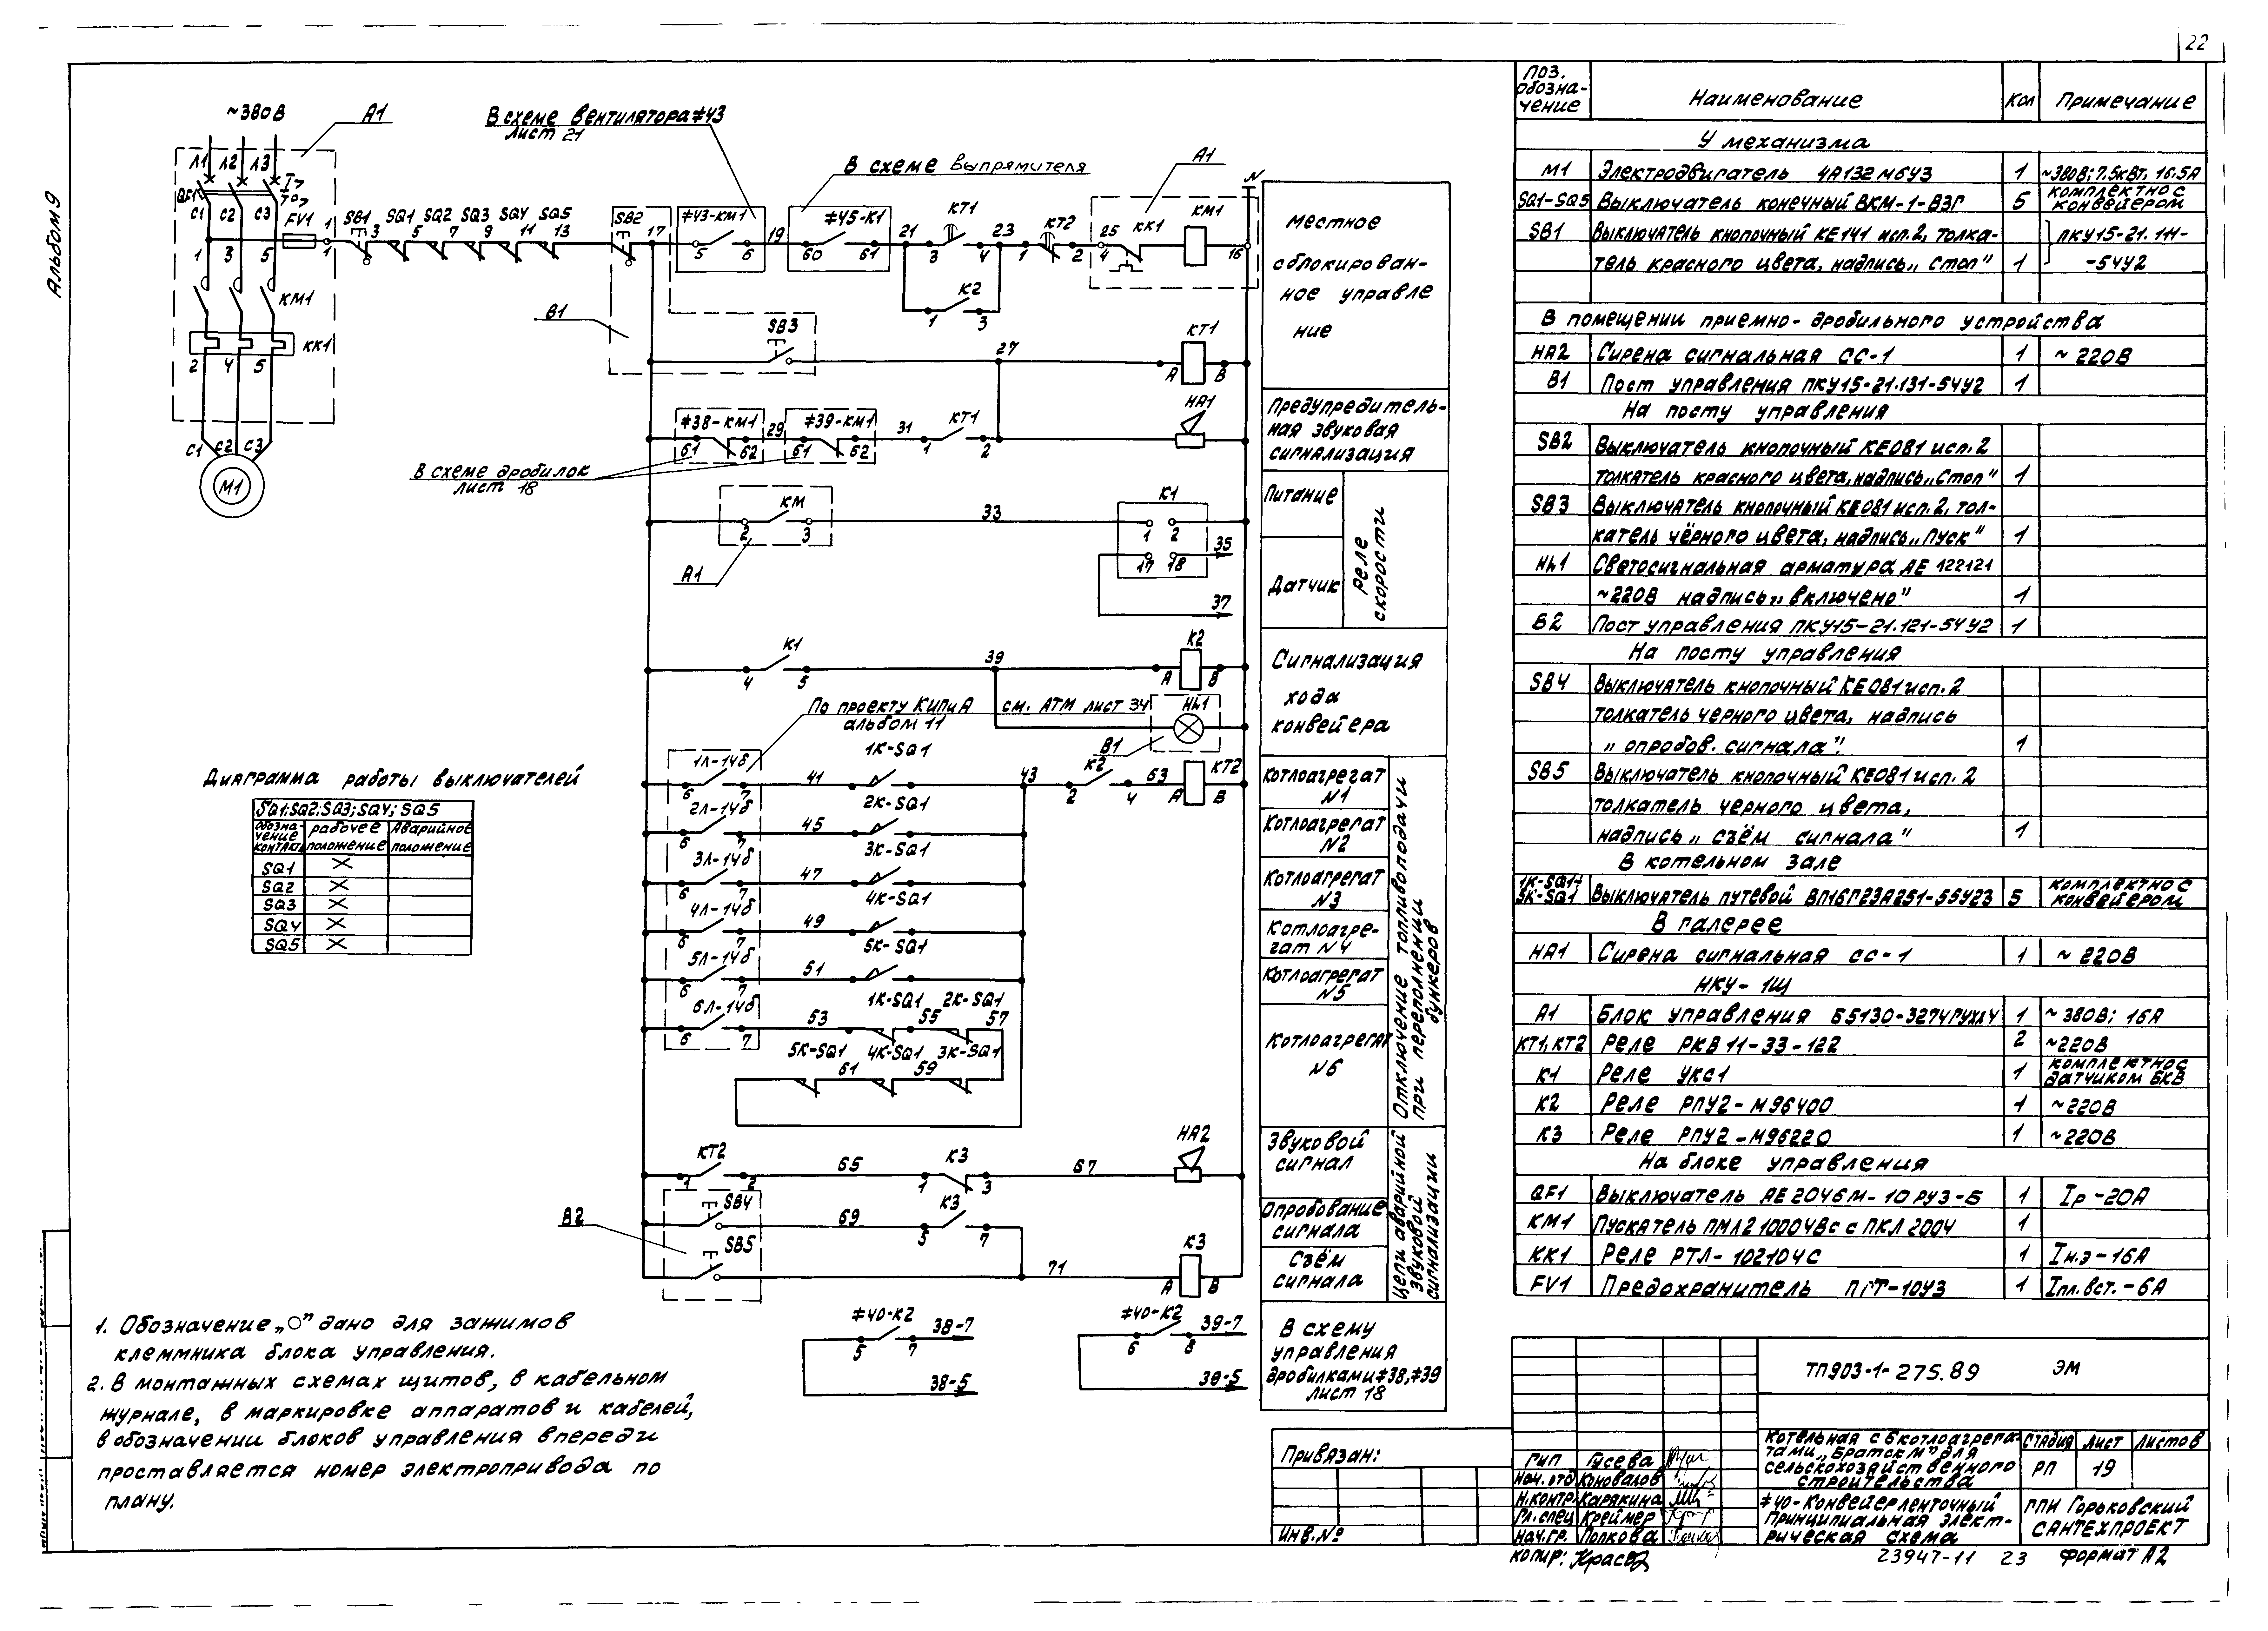 22
Альбом 9
~380В
А1
Л1 Л2 Л3
QF1
I> I>
С1 С2 С3
FV1
1 3 5
КМ1
КК1
2 4 6
С1 С2 С3
М1
В схеме вентилятора #43
лист 21
В схеме выпрямителя
А1
N
1 SB1 3 SQ1 5 SQ2 7 SQ3 9 SQ4 11 SQ5 13 SB2 17 #43-КМ1 19 #45-К1 21 КТ1 23 КТ2 25 КК1 КМ1
1 5 6 60 61 3 4 1 2 4 16
К2
1 3
В1
SB3 27 КТ1
А В
#38-КМ1 29 #39-КМ1 31 КТ1 НА1
61 62 61 62 1 2
В схеме дробилок
лист 18
КМ 33 К1
2 3 1 2
17 18 35
37
А1
К1 39 К2
4 5 А В
По проекту КИПиА см. АТМ лист 34
альбом 11
НL1
В1
1Л-14б 41 1К-SQ1 43 К2 63 КТ2
6 7 2 4 А В
2Л-14б 45 2К-SQ1
6 7
3Л-14б 47 3К-SQ1
6 7
4Л-14б 49 4К-SQ1
6 7
5Л-14б 51 5К-SQ1
6 7
6Л-14б 53 1К-SQ1 55 2К-SQ1 57
6 7
5К-SQ1 61 4К-SQ1 59 3К-SQ1
КТ2 65 К3 67 НА2
1 2 1 3
В2
SB4 69 К3
5 7
SB5 71 К3
А В
#40-К2 38-7
5 7
38-5
#40-К2 39-7
6 8
39-5
Местное
сблокирован-
ное управле
ние
Предупредитель-
ная звуковая
сигнализация
Питание
Датчик
Реле
скорости
Сигнализация
хода
конвейера
Котлоагрегат
N1
Котлоагрегат
N2
Котлоагрегат
N3
Котлоагре-
гат N4
Котлоагрегат
N5
Котлоагрегат
N6
Отключение топливоподачи
при переполнении
бункеров
Звуковой
сигнал
Опробование
сигнала
Съём
сигнала
Цепи аварийной
звуковой
сигнализации
В схему
управления
дробилками #38, #39
лист 18
Диаграмма работы выключателей
SQ1; SQ2; SQ3; SQ4; SQ5
Обозна-
чение
контакта
рабочее
положение
Аварийное
положение
SQ1 X
SQ2 X
SQ3 X
SQ4 X
SQ5 X
1. Обозначение „О" дано для зажимов
клеммника блока управления.
2. В монтажных схемах щитов, в кабельном
журнале, в маркировке аппаратов и кабелей,
в обозначении блоков управления впереди
проставляется номер электропривода по
плану.
Поз.
обозна-
чение Наименование Кол Примечание
У механизма
М1 Электродвигатель 4А132М6У3 1 ~380В; 7.5кВт, 16.5А
SQ1-SQ5 Выключатель конечный ВКМ-1-ВЗГ 5 комплектно с
конвейером
SB1 Выключатель кнопочный КЕ141 исп.2, толка- ПКУ15-21.111-
тель красного цвета, надпись „Стоп" 1 -54У2
В помещении приемно-дробильного устройства
НА2 Сирена сигнальная СС-1 1 ~220В
В1 Пост управления ПКУ15-21.131-54У2 1
На посту управления
SB2 Выключатель кнопочный КЕ081 исп.2
толкатель красного цвета, надпись „Стоп" 1
SB3 Выключатель кнопочный КЕ081 исп.2, тол-
катель чёрного цвета, надпись „Пуск" 1
НL1 Светосигнальная арматура АЕ 122121
~220В надпись „включено" 1
В2 Пост управления ПКУ15-21.121-54У2 1
На посту управления
SB4 Выключатель кнопочный КЕ081 исп.2
толкатель черного цвета, надпись
„опробов. сигнала". 1
SB5 Выключатель кнопочный КЕ081 исп. 2
толкатель черного цвета,
надпись „съём сигнала" 1
В котельном зале
1К-SQ1÷
5К-SQ1 Выключатель путевой ВП16Г23А251-55У23 5 комплектно с
конвейером
В галерее
НА1 Сирена сигнальная СС-1 1 ~220В
НКУ-1Щ
А1 Блок управления Б5130-3274ГУХЛ4 1 ~380В; 16А
КТ1, КТ2 Реле РКВ 11-33-122 2 ~220В
К1 Реле УКС1 1 комплектно с
датчиком БКВ
К2 Реле РПУ2-М96400 1 ~220В
К3 Реле РПУ2-М96220 1 ~220В
На блоке управления
QF1 Выключатель АЕ2046М-10РУ3-Б 1 Iр-20А
КМ1 Пускатель ПМЛ210004Вс с ПКЛ 2004 1
КК1 Реле РТЛ-102104С 1 Iн.э-16А
FV1 Предохранитель ПТ-10У3 1 Iпл.вст.-6А
ТП903-1-275.89 ЭМ
Котельная с 6 котлоагрега-
тами „Братск М" для
сельскохозяйственного
строительства
Стадия Лист Листов
РП 19
#40-Конвейер ленточный
Принципиальная элект-
рическая схема
ГПИ Горьковский
САНТЕХПРОЕКТ
Привязан:
Инв.№
ГИП Гусева
Нач.отд Коновалов
Н.контр. Карякина
Гл.спец Креймер
Нач.гр. Попкова
Копир:
23947-11 23 Формат А2